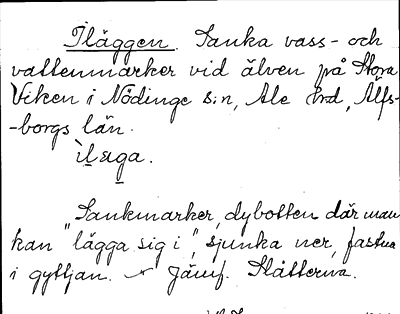 Iläggen. Sanka vass- och
vattenmarker vid älven på Stora
Viken i Nödinge s:n, Ale hrd, Älfs-
-borgs län.
Sankmarker, dybotten där man
kan "lägga sig i", sjunka ner, fastna
i gyttjan. Jämf. Slåtterna.